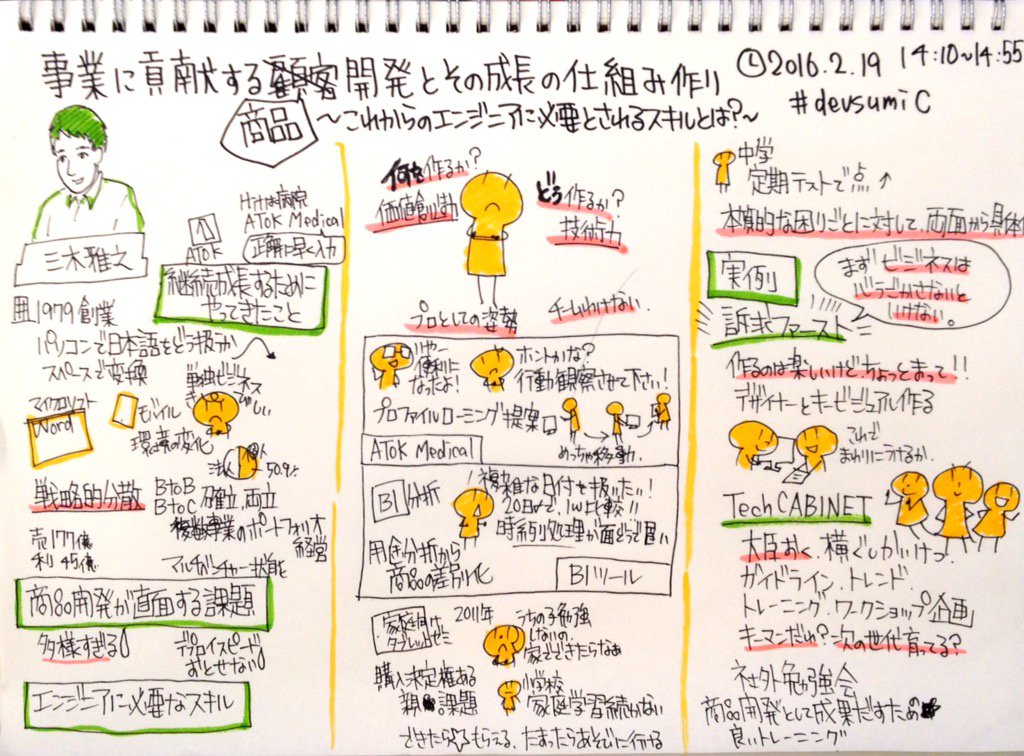 事業に貢献する顧客開発とその成長の仕組み作り
商品
～これからのエンジニアに必要とされるスキルとは?～
2016.2.19 14:10~14:55
#devsumiC
三木雅之
ATOK
ATOK Medical
正確に早く入力
継続成長するために
やってきたこと
1979 創業
パソコンで日本語をどう扱うか
スペースで変換
単独ビジネス
マイクロソフト
Word
モバイル
環境の変化
法人
個人
50.9%
戦略的分散
BtoB
BtoC
確立、両立
複数事業のポートフォリオ
経営
売177億
利 45億
マルチベンチャー状態
商品開発が直面する課題
多様すぎる
デプロイスピード
おとせない
エンジニアに必要なスキル
何を作るか?
価値創造力
どう作るか?
技術力
プロとしての姿勢
チームわけない
いやー
便利に
なったよ!
ホントかな?
行動観察させて下さい!
プロファイルローミング提案
めっちゃ移動
ATOK Medical
BI分析
複雑な日付を扱いたい!
20日〆で、1W比較!!
時系列処理が面どうで遅い
用途分析から
商品の差別化
BIツール
家庭向け
タブレットゼミ
2011年
うちの子勉強
しないの
家でできたらなあ
購入決定権ある
親 課題
小学校
家庭学習続かない
できたら☆もらえる、たまったらあそびに行ける
中学
定期テストで点↑
本質的な困りごとに対して、両面から具体
実例
まずビジネスは
いけない。
訴求ファースト
作るのは楽しいけどちょっとまって!!
デザイナーとキービジュアル作る
これで
まわりにうけるか
TechCABINET
大臣おく、横ぐしかけっ
ガイドライン、トレンド
トレーニング、ワークショップ企画
キーマンだれ?次の世代育ってる?
社外勉強会
商品開発として成果だすため
良いトレーニング